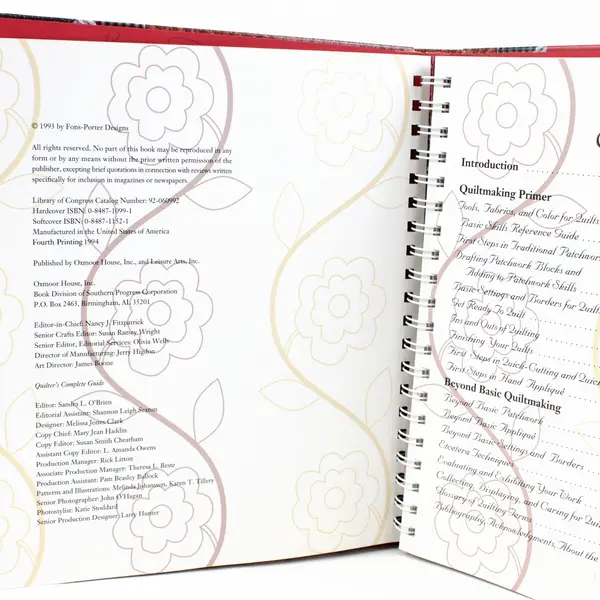 © 1993 by Fons-Porter Designs
All rights reserved. No part of this book may be reproduced in any
form or by any means without the prior written permission of the
publisher, excepting brief quotations in connection with reviews written
specifically for inclusion in magazines or newspapers.
Library of Congress Catalog Number: 92-060992
Hardcover ISBN: 0-8487-1099-1
Softcover ISBN: 0-8487-1152-1
Manufactured in the United States of America
Fourth Printing 1994
Published by Oxmoor House, Inc., and Leisure Arts, Inc.
Oxmoor House, Inc.
Book Division of Southern Progress Corporation
P.O. Box 2463, Birmingham, AL 35201
Editor-in-Chief: Nancy J. Fitzpatrick
Senior Crafts Editor: Susan Ramey Wright
Senior Editor, Editorial Services: Olivia Wells
Director of Manufacturing: Jerry Higdon
Art Director: James Boone
Quilter's Complete Guide
Editor: Sandra L. O'Brien
Editorial Assistant: Shannon Leigh Sexton
Designer: Melissa Jones Clark
Copy Chief: Mary Jean Haddin
Copy Editor: Susan Smith Cheatham
Assistant Copy Editor: L. Amanda Owens
Production Manager: Rick Litton
Associate Production Manager: Theresa L. Beste
Production Assistant: Pam Beasley Bullock
Patterns and Illustrations: Melinda Johansson, Karen T. Tillery
Senior Photographer: John O'Hagan
Photostylist: Katie Stoddard
Senior Production Designer: Larry Hunter
Introduction
Quiltmaking Primer
Tools, Fabrics, and Color for Quilts
Basic Skills Reference Guide
First Steps in Traditional Patchwork
Drafting Patchwork Blocks and
Adding to Patchwork Skills
Basic Settings and Borders for Quilts
Get Ready To Quilt
Ins and Outs of Quilting
Finishing Your Quilts
First Steps in Quick-Cutting and Quick
First Steps in Hand Appliqué
Beyond Basic Quiltmaking
Beyond Basic Patchwork
Beyond Basic Appliqué
Beyond Basic Settings and Borders
Etcetera Techniques
Evaluating and Exhibiting Your Work
Collecting, Displaying, and Caring for Quilts
Glossary of Quilting Terms
Bibliography, Acknowledgments, About the